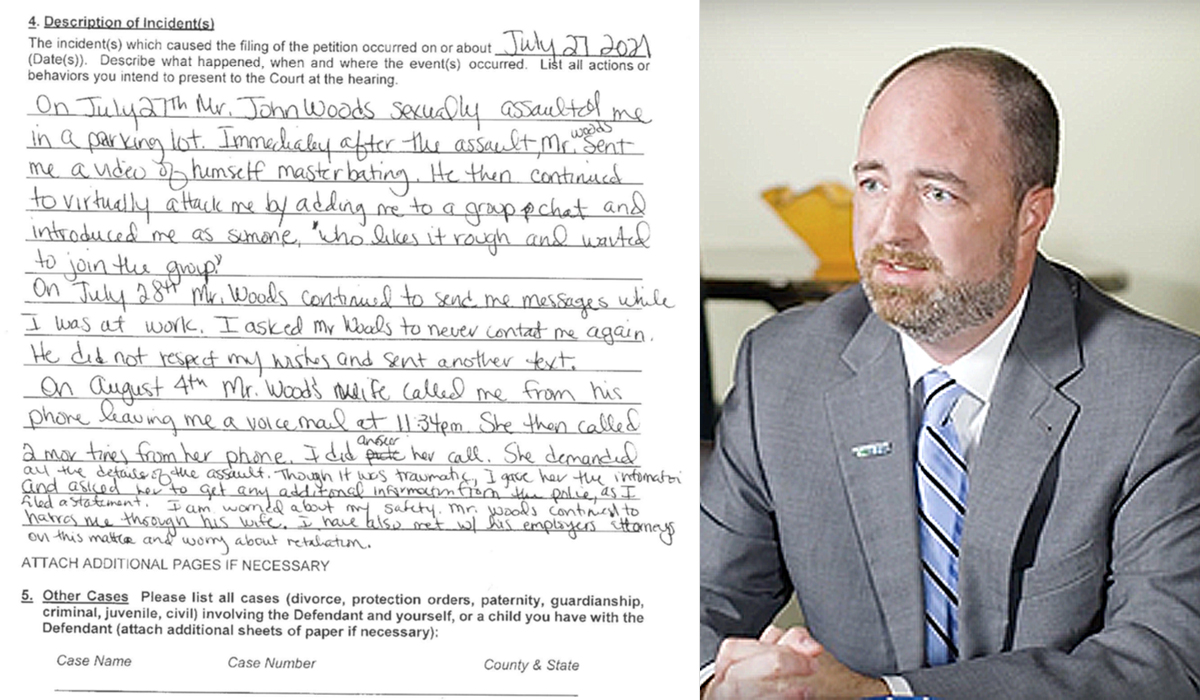 4. Description of Incident(s)
The incident(s) which caused the filing of the petition occurred on or about July 27 2021
(Date(s)). Describe what happened, when and where the event(s) occurred. List all actions or
behaviors you intend to present to the Court at the hearing.
On July 27th Mr. John Woods sexually assaulted me
in a parking lot. Immediatey after the assault, Mr. Woods sent
me a video of himself masterbating. He then continued
to virtually attack me by adding me to a group chat and
introduced me as simone, "who likes it rough and wanted
to join the group."
On July 28th Mr. Woods continued to send me messages while
I was at work. I asked Mr Woods to never contact me again.
He did not respect my wishes and sent another text.
On August 4th Mr. Wood's wife called me from his
phone leaving me a voicemail at 11:34pm. She then called
2 mor times from her phone. I did answer her call. She demanded
all the details of the assault. Though it was traumatic, I gave her the information
and asked her to get any additional information from the police, as I
filed a statement. I am worried about my safety. Mr. Woods continues to
harras me through his wife. I have also met w/ his employers attorneys
on this matter and worry about retaliation.
ATTACH ADDITIONAL PAGES IF NECESSARY
5. Other Cases Please list all cases (divorce, protection orders, paternity, guardianship,
criminal, juvenile, civil) involving the Defendant and yourself, or a child you have with the
Defendant (attach additional sheets of paper if necessary):
Case Name Case Number County & State